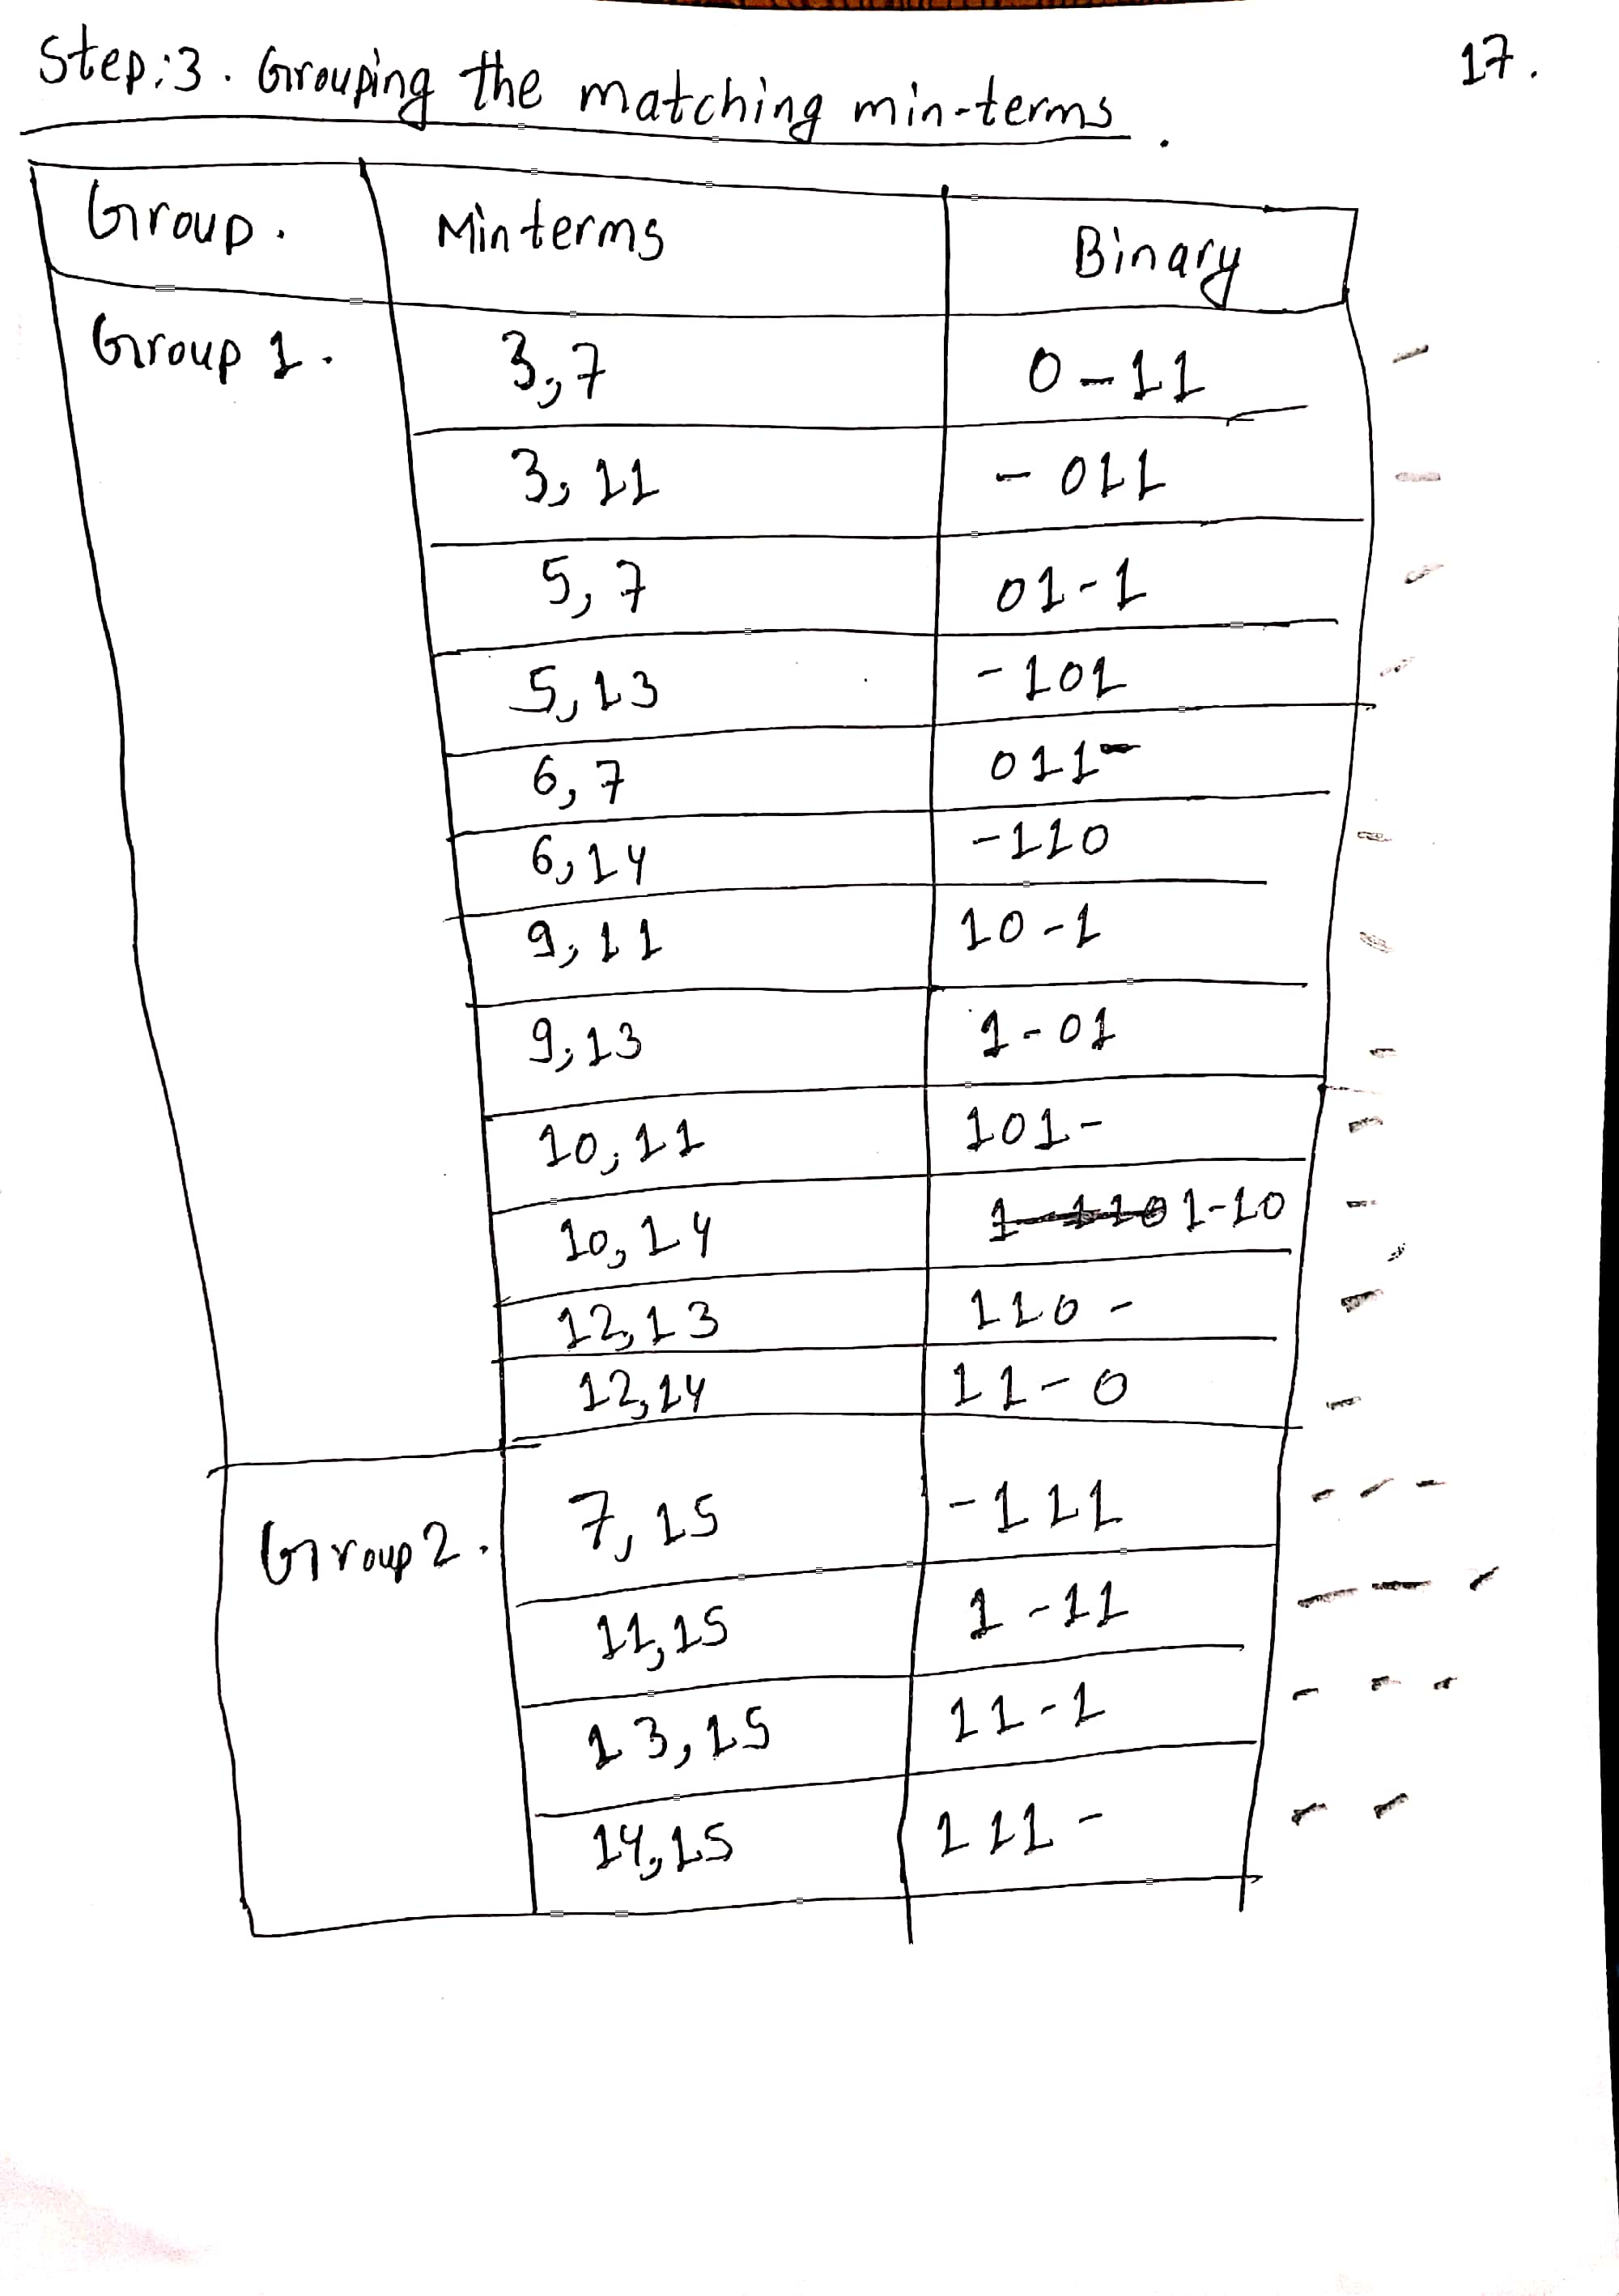 Step:3. Grouping the matching min-terms.
17.
Group. Minterms Binary
Group 1. 3,7 0-11
3,11 -011
5,7 01-1
5,13 -101
6,7 011-
6,14 -110
9,11 10-1
9,13 1-01
10,11 101-
10,14 1-110 1-10
12,13 110-
12,14 11-0
Group 2. 7,15 -111
11,15 1-11
13,15 11-1
14,15 111-